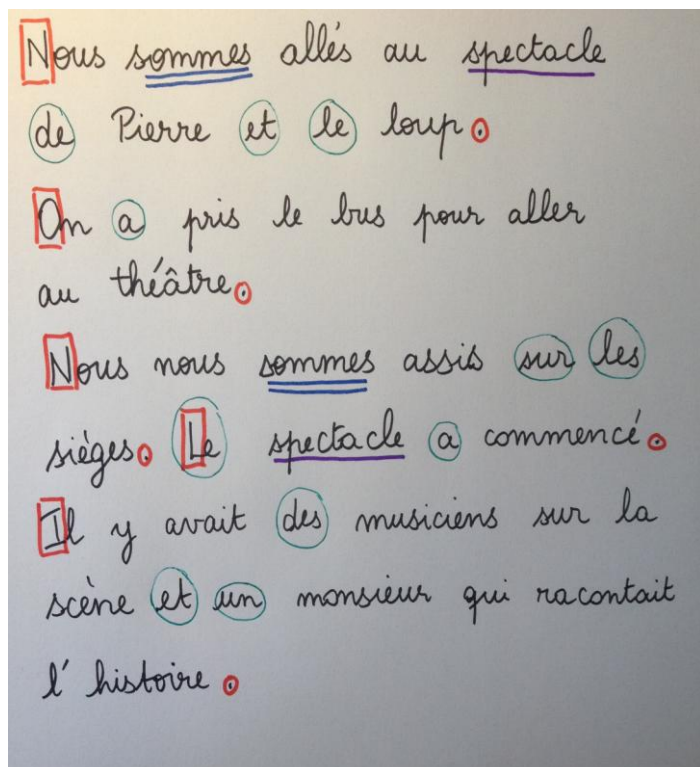 Nous sommes allés au spectacle
de Pierre et le loup.
On a pris le bus pour aller
au théâtre.
Nous nous sommes assis sur les
sièges. Le spectacle a commencé.
Il y avait des musiciens sur la
scène et un monsieur qui racontait
l' histoire.